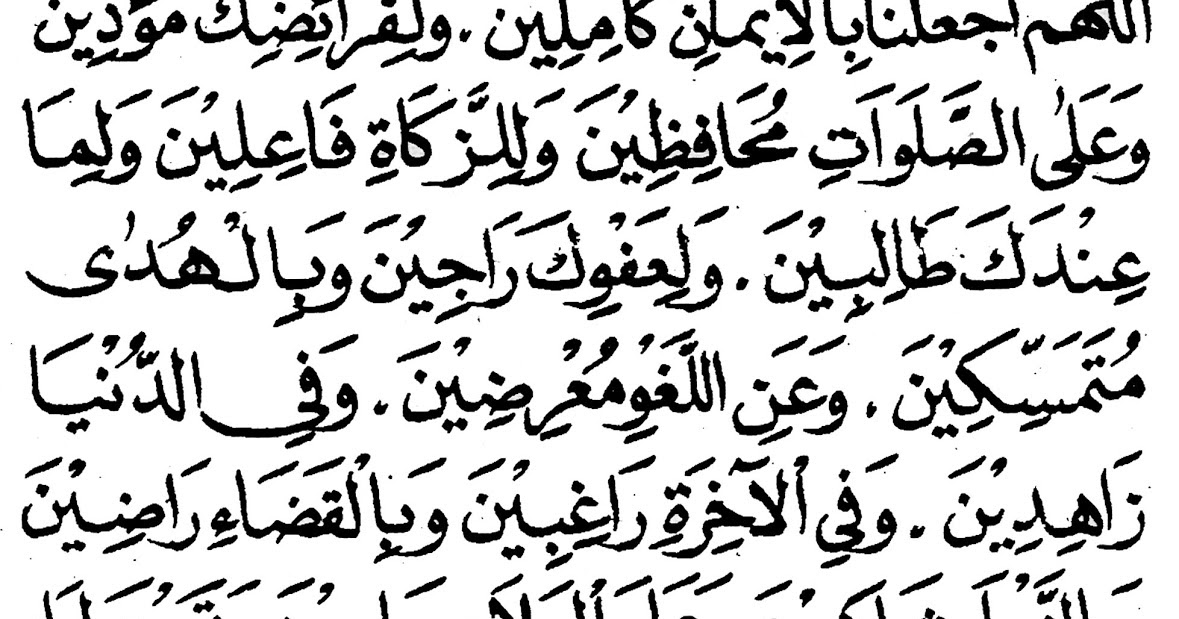 اللهم اجعلنا بالإيمان كاملين . ولفرائضك مؤدين
وَعَلَى الصَّلَوَاتِ مُحَافِظِيْنَ وَلِلزَّكَاةِ فَاعِلِيْنَ وَلِمَا
عِنْدَكَ طَالِبِيْنَ . وَلِعَفْوِكَ رَاجِيْنَ وَبِالْهُدٰى
مُتَمَسِّكِيْنَ . وَعَنِ اللَّغْوِ مُعْرِضِيْنَ . وَفِي الدُّنْيَا
زَاهِدِيْنَ . وَفِي اْلآخِرَةِ رَاغِبِيْنَ وَبِالْقَضَاءِ رَاضِيْنَ